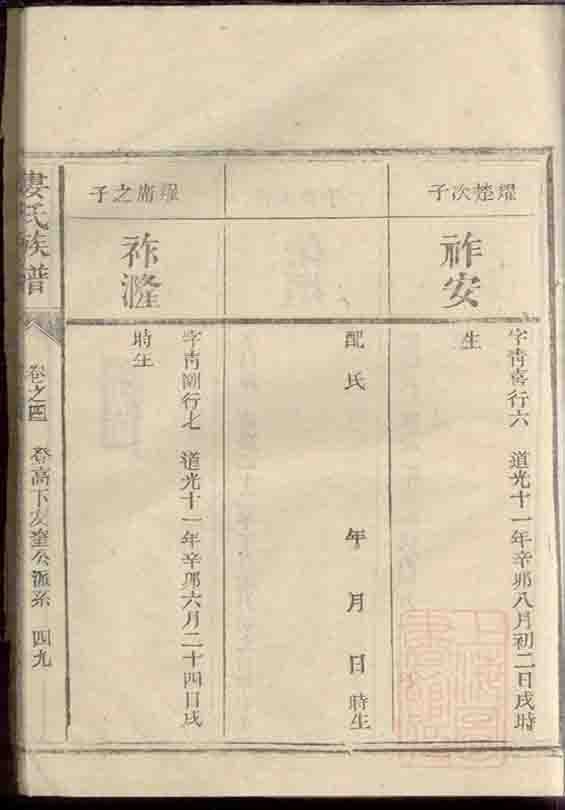 耀楚次子
祚安
字靑喜行六　道光十一年辛卯八月初二日戌時
生
配氏　年　月　日時生
耀庸之子
祚瀊
字靑剛行七　道光十一年辛卯六月二十四日戌
時生
婁氏族譜
卷之四　登高下友奎公派系　四九